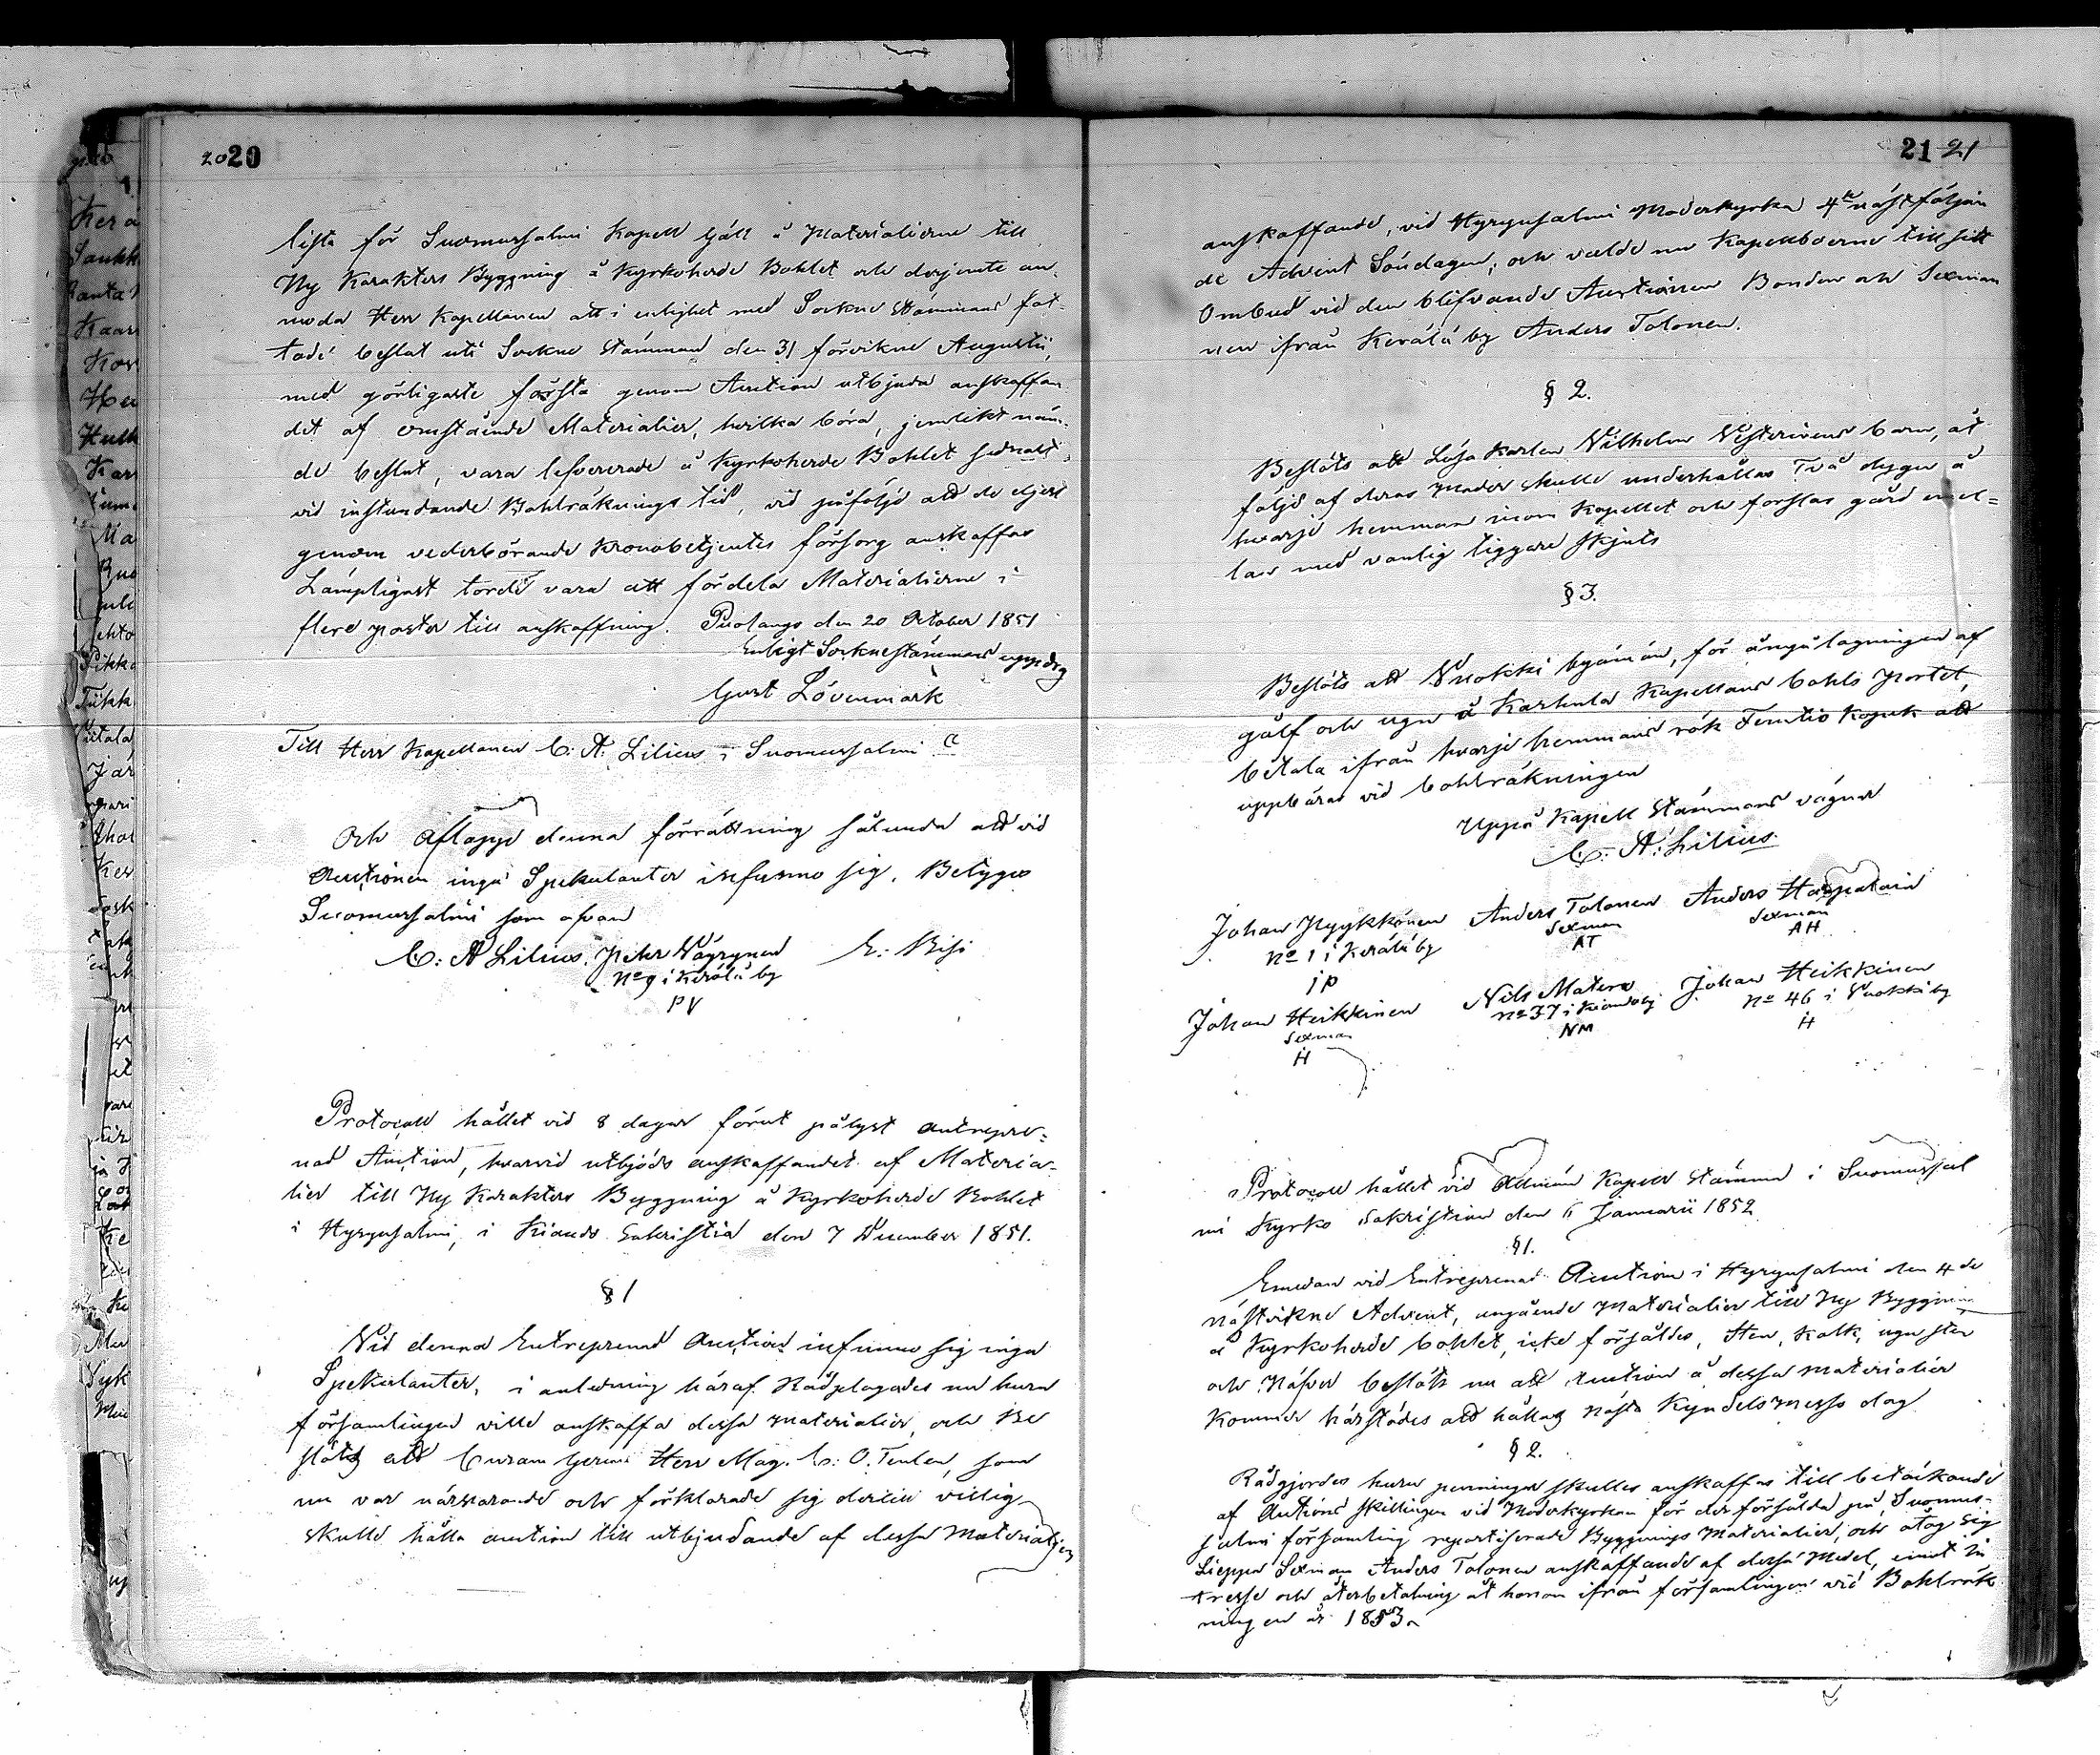 20 20
lista för Suomussalmi Kapell Gäll å Materialierne till
Ny Karakters Byggning å Kyrkoherde Bohlet och derjemte an-
moda Herr Kapellanen att i enlighet med Sockne Stämmans fat-
tade beslut uti Sockne Stämman den 31 förvikne Augusti,
med görligaste första genom Auction utbjuda anskaffan
det af omstående Materialier, hvilka böra, jemlikt näm-
de beslut, vara lefvererade å Kyrkoherde Bohlet sednast
vid instundande Bohlräknings tid, vid påföljd att de eljest
genom vederbörande Kronobetjentes försorg anskaffas
Lämpligast torde vara att fördela Materialierne i
flere poster till anskaffning. Puolango den 20 October 1851
Enligt Socknestämmans uppdrag
Gust Lövenmark
Till Herr Kapellanen C: A: Lilius i Suomussalmi
Och aflopp denna förrättning sålunda att vid
Auctionen inga Spekulanter infunno sig, Betygas
Suomussalmi som ofvan
C: A Lilius. Petr Väyrynen E: Kisi
No 9 i Kerälä by
PV
Protocoll hållet vid 8 dagar förut pålyst entrepre-
nad Auction, hvarvid utbjöds anskaffandet af Materia-
lier till Ny Karakters Byggning å Kyrkoherde Bohlet
i Hyrynsalmi, i Kiando Sakristia den 7 December 1851.
§ 1
Vid denna Entreprenad Auction infunno sig inga
Spekulanter, i anledning häraf Rådplagades nu huru
församlingen ville anskaffa dessa materialier, och Be
slöts att Herr Mag. C: O. Tenlen, som
nu var närvarande och förklarade sig dertill villig
skulle hålla auction till utbjudande af dessa Materialiers
21 21
anskaffande, vid Hyrynsalmi Moderkyrka 4de nästföljan
de Advent Söndagen; och valde nu Kapellboerne till sitt
Ombud vid den blifvande Auctionen Bonden och Sexman
nen ifrån Kerälä by Anders Tolonen.
§ 2.
Beslöts att Lösa Karlen Wilhelm Westerinens barn, åt
följd af deras Moder skulle underhållas Två dygn å
hvarje hemman inom Kapellet och forslas gård emel-
lan med vanlig tiggare skjuts
§ 3.
Beslöts att Vuokki byamän, för ånyo lagningen af
golf och ugn å Karhula Kapellans bohls Portet,
betala ifrån hvarje hemmans rök Femtio Kopek att
uppbäras vid bohlräkningen
Uppå Kapell Stämmans vägnar
C: A: Lilius
Johan Pyykkönen Anders Tolonen Anders Haapalain
No 1 i Kerälä by Sexman Sexman
IP AT AH
Johan Heikkinen Nils Matero Johan Heikkinen
Sexman No 37 i Kiando by No 46 i Vuokki by
H NM H
Protocoll hållet vid Allmän Kapell Stämma i Suomussal
mi Kyrko Sakristian den 6 Januarii 1852
§ 1.
Emedan vid Entreprenad Auction i Hyrynsalmi den 4de
nästvikne Advent, angående Materialier till Ny Byggning
å Kyrkoherde bohlet, icke försåldes, Sten, Kalk, ugn sten
och Näfver beslöts nu att Auction å dessa materialier
kommer härstädes att hållas nästa Kyndelsmesso dag
§ 2.
Rådgjordes huru penningar skulles anskaffas till betäckande
af Auctions skillingen vid Moderkyrkan för der försålda på Suomus-
salmi församling repartiserade Byggnings Materialier, och åtog sig
Lieppa Sexman Anders Tolonen anskaffande af dessa medel, emot In
tresse och återbetalning åt honom ifrån församlingen vid Bohlräk
ningen år 1853